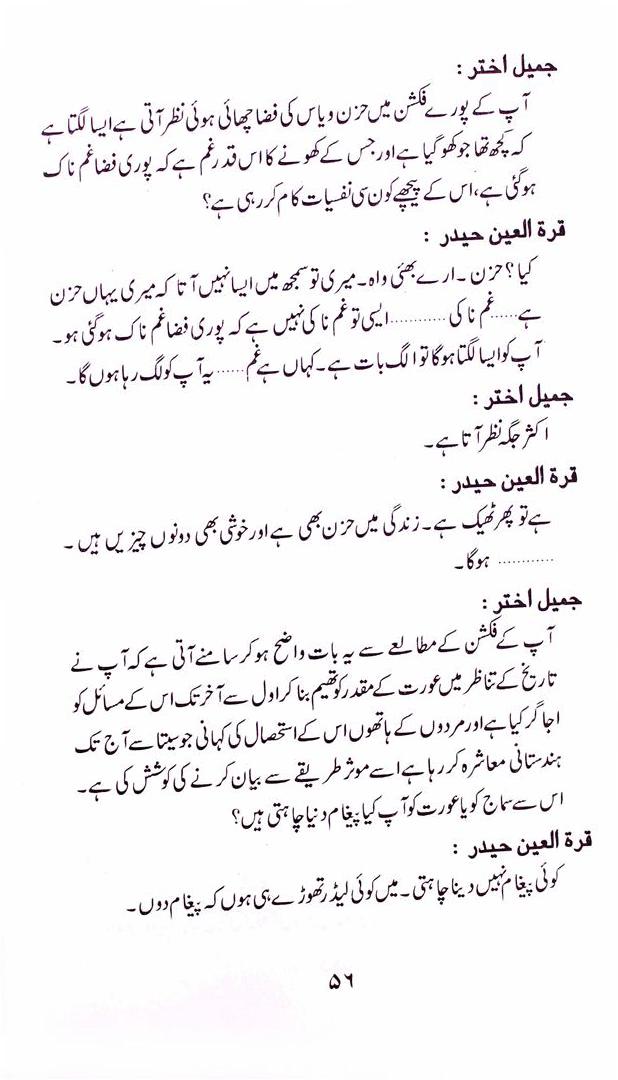 جمیل اختر :
آپ کے پورے فکشن میں حزن و یاس کی فضا چھائی ہوئی نظر آتی ہے ایسا لگتا ہے
کہ کچھ تھا جو کھو گیا ہے اور جس کے کھونے کا اس قدر غم ہے کہ پوری فضا غم ناک
ہوگئی ہے، اس کے پیچھے کون سی نفسیات کام کر رہی ہے؟
قرۃ العین حیدر :
کیا؟ حزن۔ ارے بھئی واہ۔ میری تو سمجھ میں ایسا نہیں آتا کہ میری یہاں حزن
ہے......غم ناکی ........... ایسی تو غم ناکی نہیں ہے کہ پوری فضا غم ناک ہوگئی ہو۔
آپ کو ایسا لگتا ہوگا تو الگ بات ہے۔ کہاں ہے غم...... یہ آپ کو لگ رہا ہوں گا۔
جمیل اختر :
اکثر جگہ نظر آتا ہے۔
قرۃ العین حیدر :
ہے تو پھر ٹھیک ہے۔ زندگی میں حزن بھی ہے اور خوشی بھی دونوں چیزیں ہیں۔
............ ہوگا۔
جمیل اختر :
آپ کے فکشن کے مطالعے سے یہ بات واضح ہو کر سامنے آتی ہے کہ آپ نے
تاریخ کے تناظر میں عورت کے مقدر کو تھیم بنا کر اول سے آخر تک اس کے مسائل کو
اجاگر کیا ہے اور مردوں کے ہاتھوں اس کے استحصال کی کہانی جو سیتا سے آج تک
ہندستانی معاشرہ کر رہا ہے اسے موثر طریقے سے بیان کرنے کی کوشش کی ہے۔
اس سے سماج کو یا عورت کو آپ کیا پیغام دنیا چاہتی ہیں؟
قرۃ العین حیدر :
کوئی پیغام نہیں دینا چاہتی۔ میں کوئی لیڈر تھوڑے ہی ہوں کہ پیغام دوں۔
۵۶